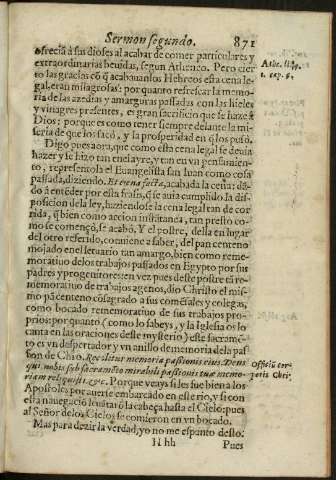 Sermon segundo. 871
ofrecia â sus dioses al acabar de comer particulares y
extraordinarias beuidas, segun Atheneo. Pero cier
to las gracias cõ q̃ acabauan los Hebreos esta cena le-
gal, eran milagrosas: por quanto refrescar la memo-
ria de las azedias y amarguras passadas con las hieles
y vinagres presentes, es gran sacrificio que se haze â
Dios: porque es como tener siempre delante la mi-
seria de que los sacó, y la prosperidad en q̃ los puso.
Digo pues aora, que como esta cena legal se deuia
hazer y se hizo tan en el ayre, y tan en vn pensamien-
to, represéntola el Euangelista san Iuan como cosa
passada, diziendo. Et cena facta, acabada la cena: dã-
do â entẽder por esta frasis, q̃ se auia cumplido la dis-
posicion de la ley, haziendose la cena legal tan de cor
rida, q̃ bien como accion instantanea, tan presto co-
mo se començò, se acabò. Y el postre, della en lugar
del otro referido, conuiene a saber, del pan centeno
mojado en el letuario tan amargo, bien como reme-
moratiuo de los trabajos passados en Egypto por sus
padres y progenitores: en vez pues deste postre tã re-
memoratiuo de trabajos agenos, dio Christo el mis-
mo pã centeno cõsagrado a sus comẽsales y colegas,
como bocado rememoratiuo de sus trabajos pro-
prios: por quanto (como lo sabeys, y la Iglesia os lo
canta en las oraciones deste mysterio) este sacramẽ-
to es vn despertador y vn anillo de memoria de la pas
sion de Chrõ. Recolitur memoria passionis eius. Deus
qui nobis sub sacramẽto mirabili passionis tuæ memo-
riam reliquisti. &c. Porque veays si les fue bien a los
Apostoles por auerse embarcado en este rio, y si con
esta nauegaciõ leuãtarõ la cabeça hasta el Cielo; pues
al Señor de los Cielos se comieron en vn bocado.
Mas para dezir la verdad, yo no me espanto desto:
H hh Pues
Athe. lib.
1. cap. 6.
Officiũ cor-
poris Chri.